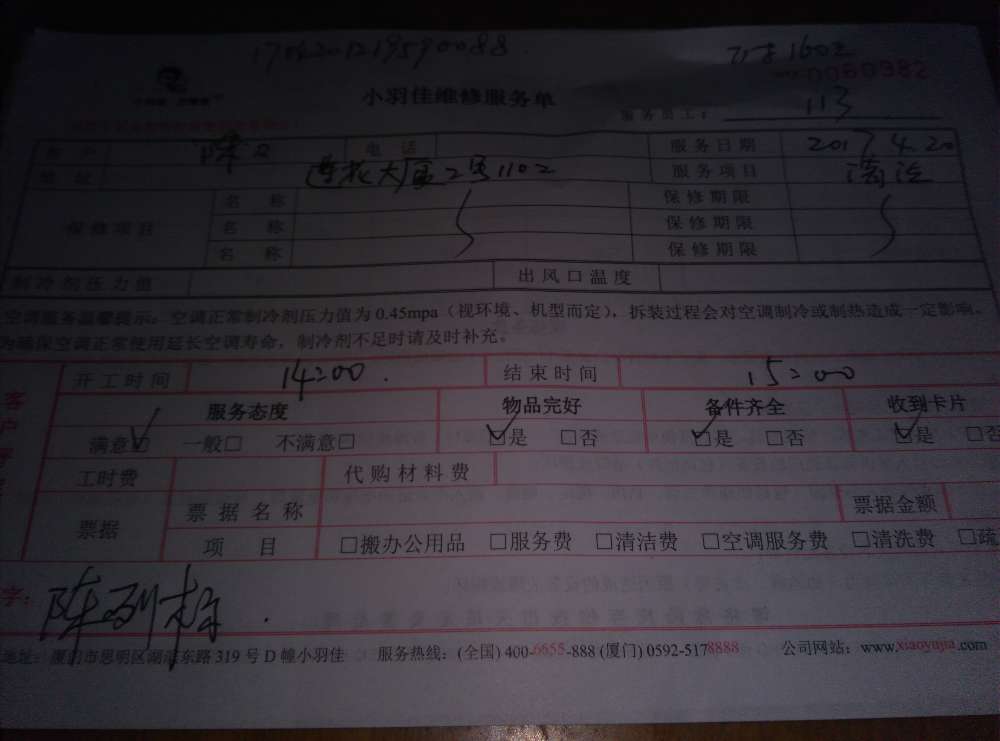 小羽佳维修服务单
0060382
服务员工： 113
客户 电话 服务日期 2017 4.20
地址 莲花大厦2号1102 服务项目 清洗
名称 保修期限
保修项目 名称 保修期限
名称 保修期限
制冷剂压力值 出风口温度
空调服务温馨提示：空调正常制冷剂压力值为0.45mpa（视环境、机型而定），拆装过程会对空调制冷或制热造成一定影响。
为确保空调正常使用延长空调寿命，制冷剂不足时请及时补充。
开工时间 14:00 结束时间 15:00
服务态度 物品完好 备件齐全 收到卡片
满意☑ 一般□ 不满意□ ☑是 □否 ☑是 □否 ☑是 □否
工时费 代购材料费
票据 票据名称 票据金额
项目 □搬办公用品 □服务费 □清洁费 □空调服务费 □清洗费 □疏
字： 陈列标
地址：厦门市思明区湖滨东路319号D幢小羽佳 服务热线：(全国) 400-6655-888 (厦门) 0592-5178888 公司网站：www.xiaoyujia.com